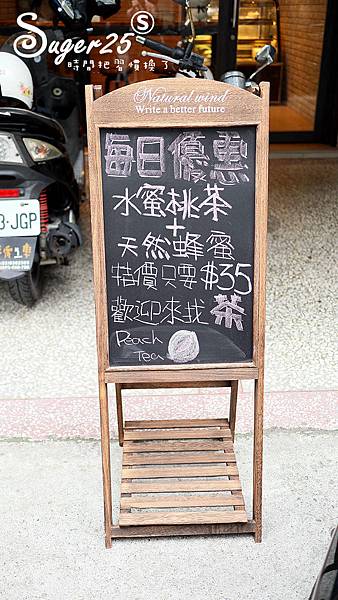 Suger25 S
時間把習慣換了
Natural wind
Write a better future
每日優惠
水蜜桃茶
+
天然蜂蜜
特價只要$35
歡迎來找茶
Peach
Tea
3-JGP